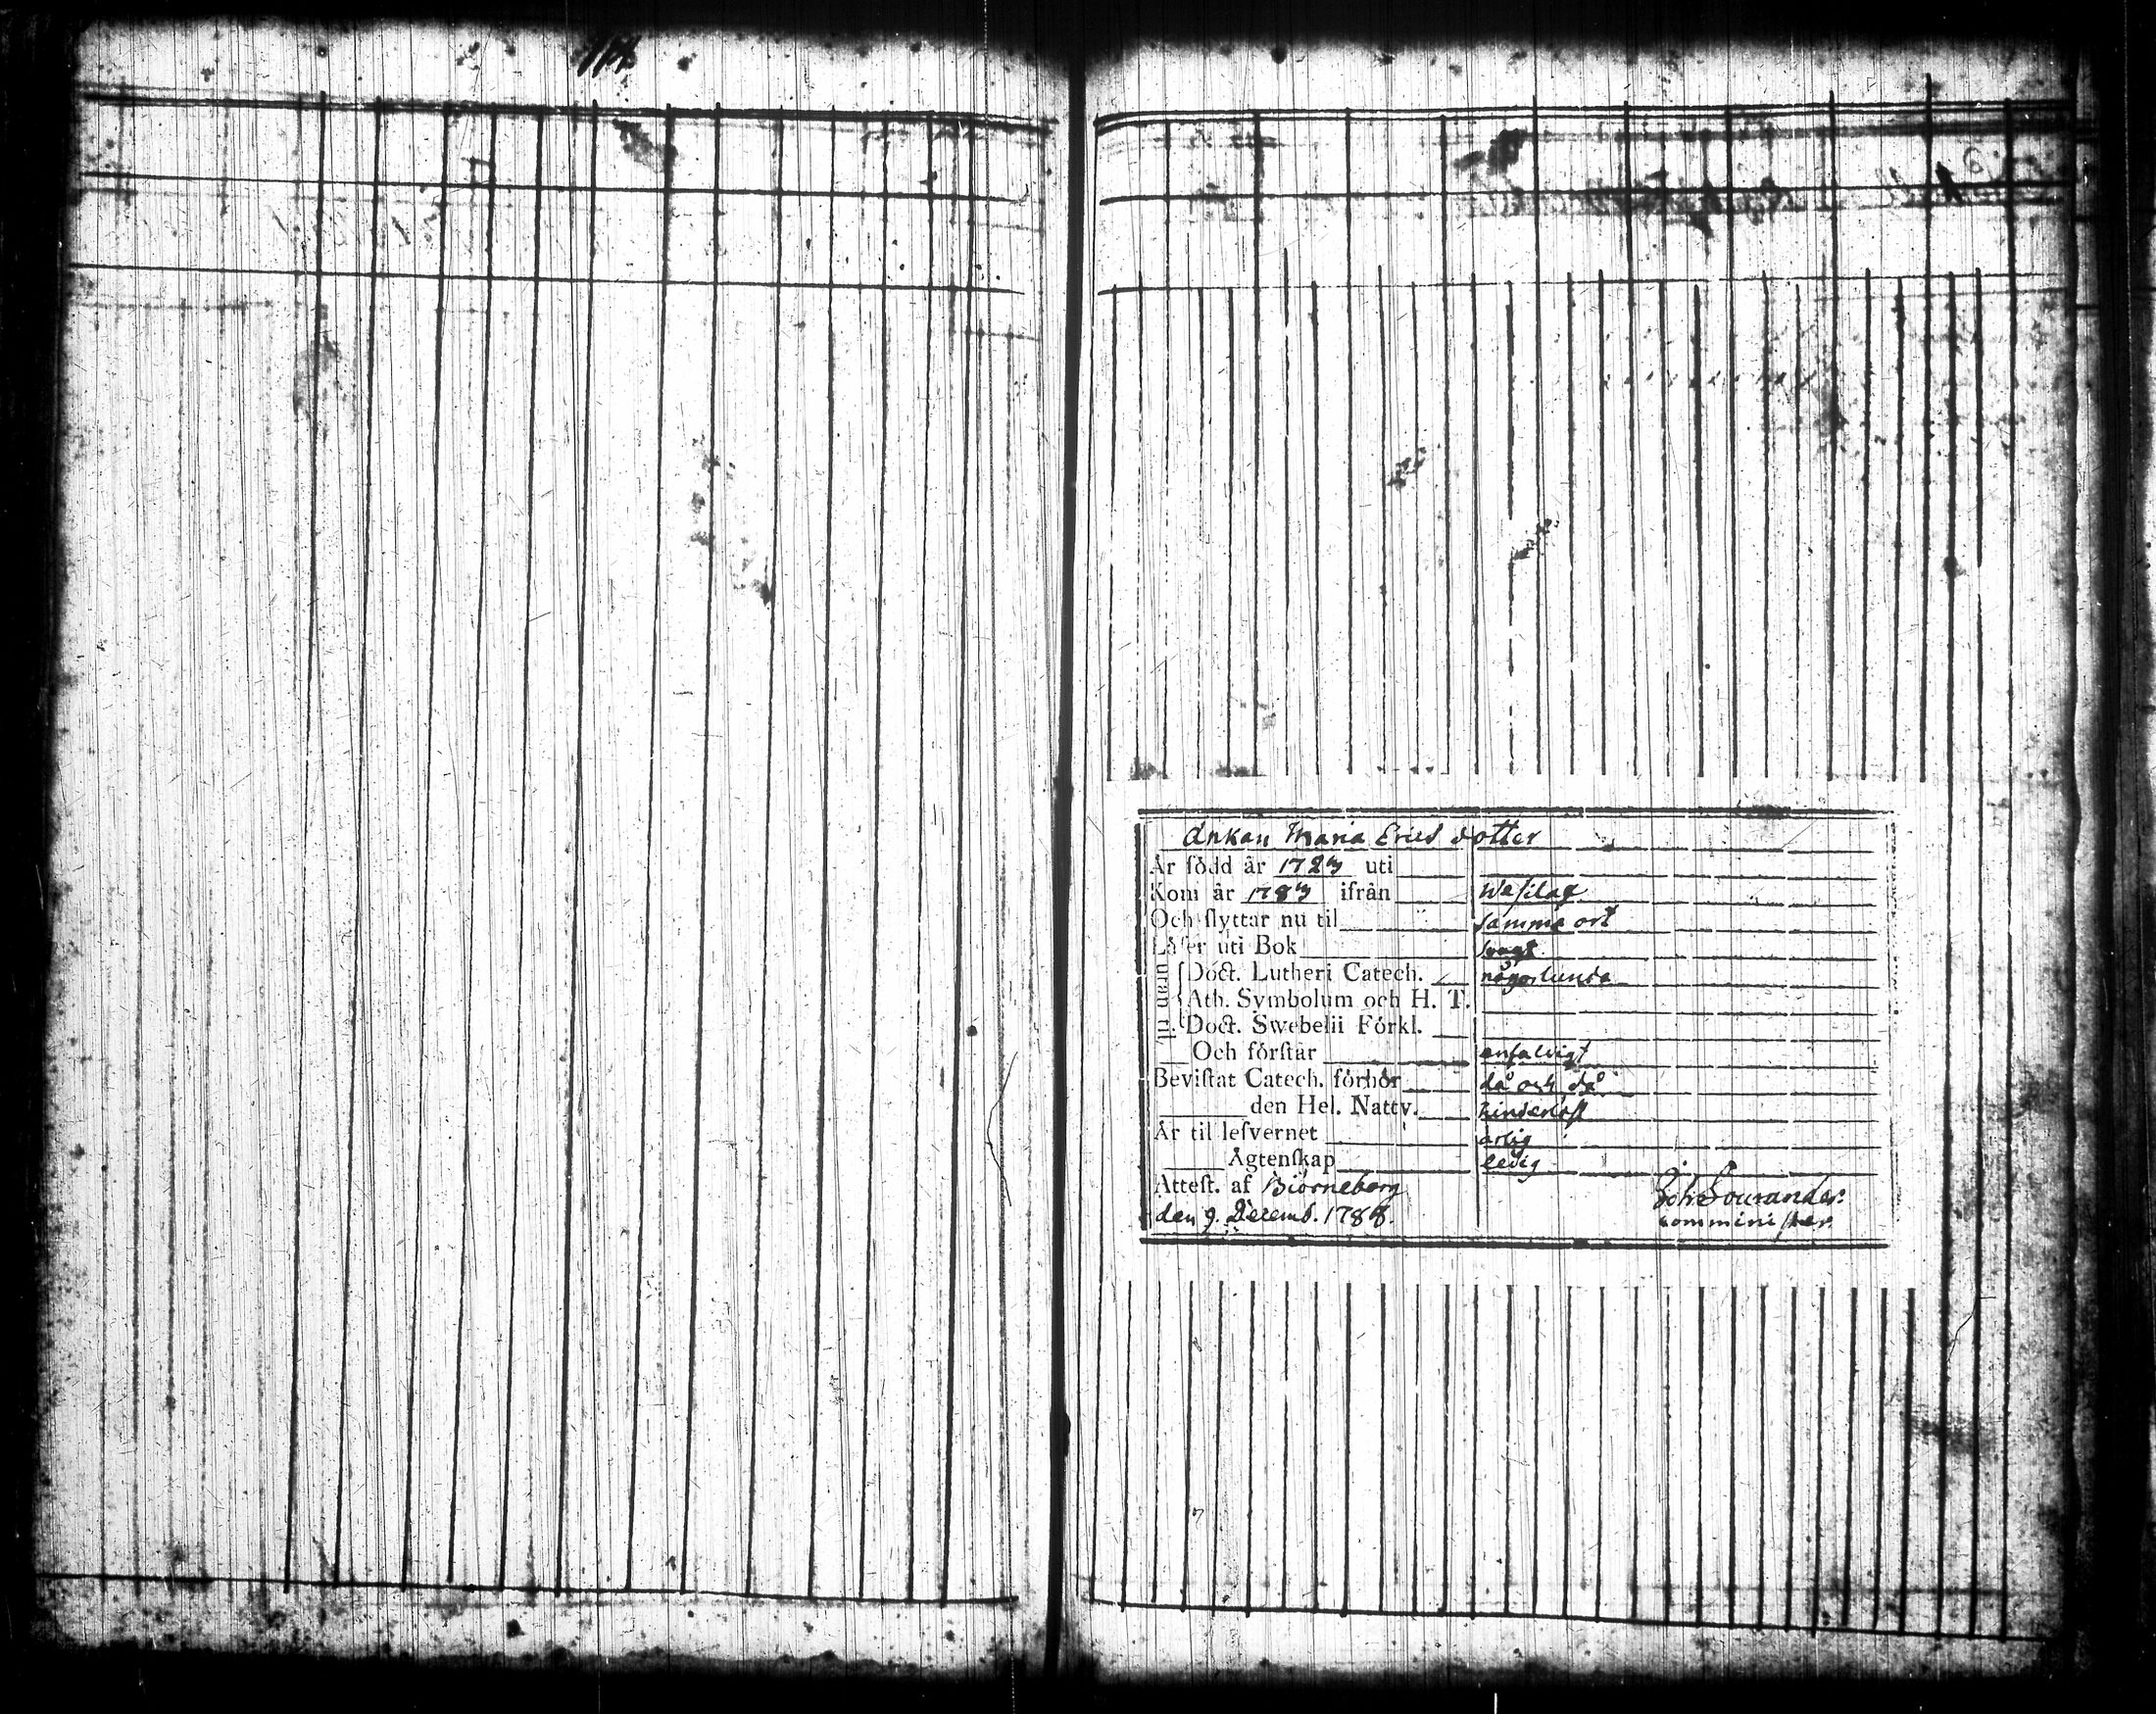 114
Ankan Maria Ericsdotter
År född år 1727 uti
Kom år 1787 ifrån Westlax
Och flyttar nu til samma ort
Låser uti Bok svagt
utan til Doct. Lutheri Catech. någorlunda
Ath. Symbolum och H. T.
Doct. Swebelii Förkl.
Och förstår enfaldigt
Bevistat Catech. förhör då och då
den Hel. Nattv. hinderlöst
År til lefvernet ärlig
Ägtenskap ledig
Attest. af Biörneborg
den 9. Decemb. 1788.
Joh. Sourander.
comminister